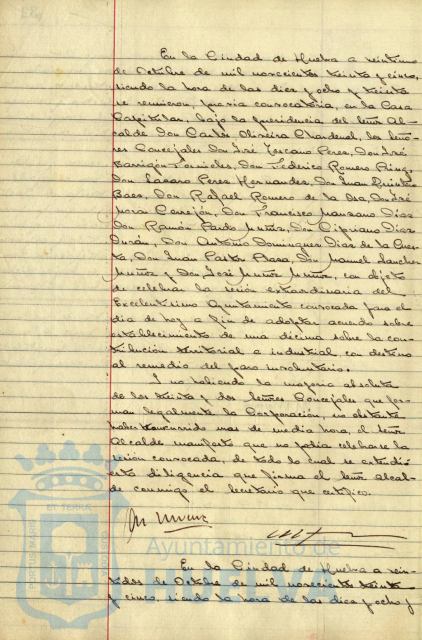 En la Ciudad de Huelva a veintiuno
de Octubre de mil novecientos treinta y cinco,
siendo la hora de las diez y ocho y treinta
se reunieron, previa convocatoria, en la Casa
Capitular, bajo la presidencia del Señor Al-
calde Don Carlos Oliveira Chardenal, los Seño-
res Concejales Don José Toscano Perez, Don José
Barrigón Fornieles, Don Federico Romero
Don Lazaro Perez Hernandez, Don Juan Quintero
Baez, Don Rafael Romero de la Osa, Don José
Mora Cerrejón, Don Francisco Manzano Diaz
Don Ramón Pardo Muñiz, Don Cipriano Diaz
Durán, Don Antonio Dominguez Diaz de la Cues-
ta, Don Juan Pastor Baza, Don Manuel Sanchez
Muñoz y Don José Muñoz Muñoz, con objeto
de celebrar la sesión extraordinaria del
Excelentísimo Ayuntamiento convocada para el
dia de hoy a fin de adoptar acuerdo sobre
establecimiento de una décima sobre la con-
tribución territorial e industrial con destino
al remedio del paro involuntario.
Y no habiendo la mayoria absoluta
de los treinta y dos Señores Concejales que for-
man legalmente la Corporación, no obstante
haber transcurrido mas de media hora, el Señor
Alcalde manifestó que no podia celebrarse la
sesión convocada, de todo lo cual se extendió
esta diligencia que firma el Señor Alcal-
de conmigo el Secretario que certifico.
EN TERRA
Ayuntamiento de
HUELVA
En la Ciudad de Huelva a vein-
tidos de Octubre de mil novecientos treinta
y cinco, siendo la hora de las diez y ocho y